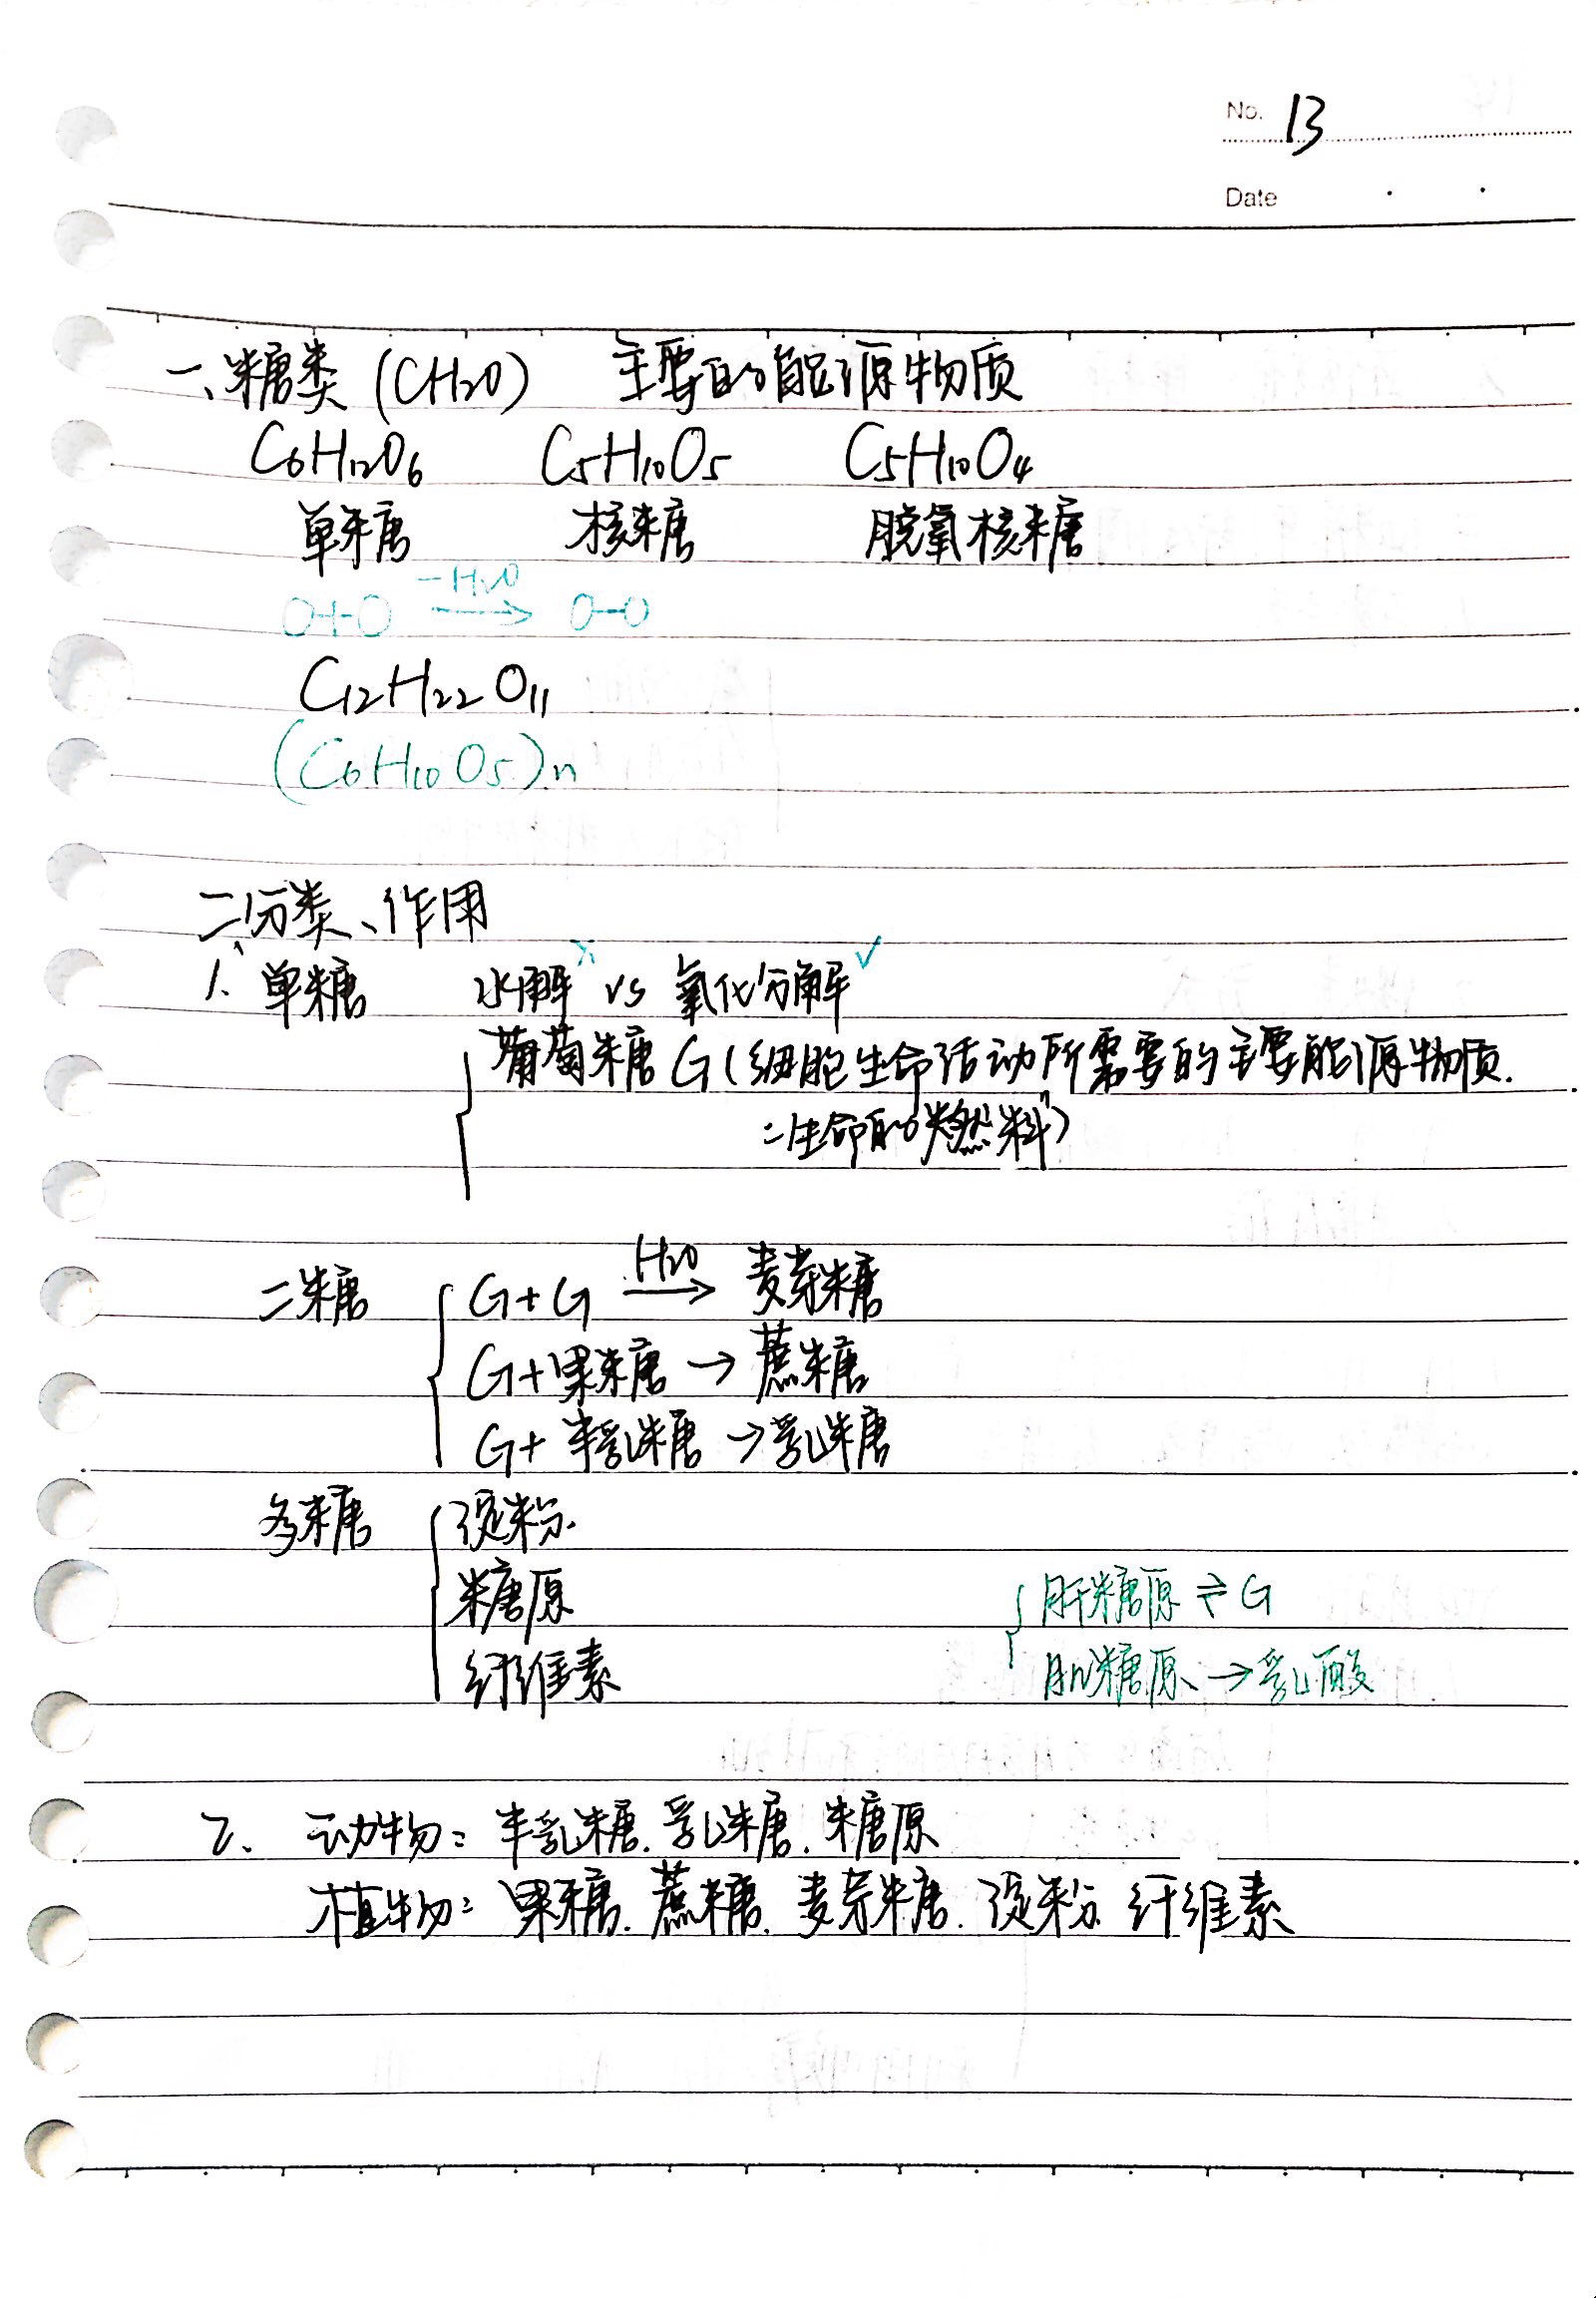 No. 13
Date
一、糖类 (CH₂O) 主要的能源物质
C₆H₁₂O₆ C₅H₁₀O₅ C₅H₁₀O₄
单糖 核糖 脱氧核糖
O+O —H₂O→ O-O
C₁₂H₂₂O₁₁
(C₆H₁₀O₅)n
二、分类、作用
1. 单糖 水解× vs 氧化分解✓
葡萄糖 G (细胞生命活动所需要的主要能源物质.
"生命的燃料")
二糖 G+G H₂O→ 麦芽糖
G+果糖 → 蔗糖
G+半乳糖 → 乳糖
多糖 淀粉.
糖原 肝糖原 ⇌ G
纤维素 肌糖原 → 乳酸
2. 动物: 半乳糖. 乳糖. 糖原
植物: 果糖. 蔗糖. 麦芽糖. 淀粉. 纤维素